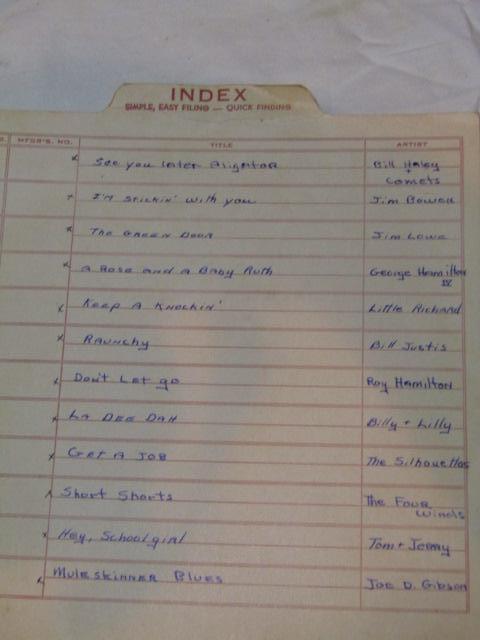 INDEX
SIMPLE, EASY FILING — QUICK FINDING
MFGR'S. NO. TITLE ARTIST
x See you later Aligator Bill Haley + Comets
x I'm stickin' with you Jim Bowen
x The Green Door Jim Lowe
x a Rose and a Baby Ruth George Hamilton IV
x Keep A Knockin' Little Richard
x Raunchy Bill Justis
x Don't Let go Roy Hamilton
x La Dee Dah Billy + Lilly
x Get A Job The Silhouettes
x Short Shorts The Four Winds
x Hey, Schoolgirl Tom + Jerry
x Muleskinner Blues Joe D. Gibson